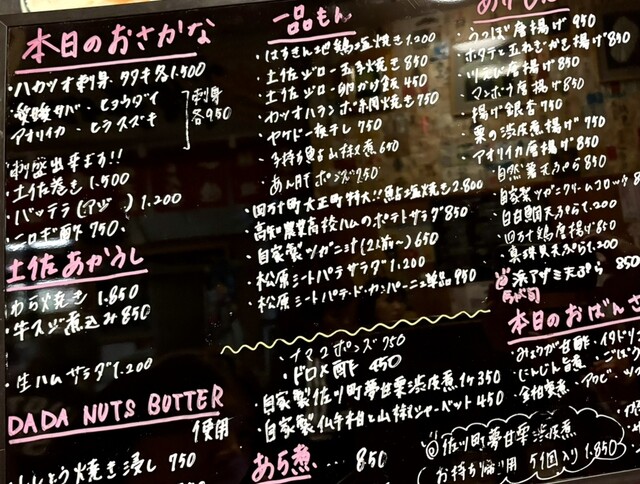 本日のおさかな
・ハガツオ刺身 タタキ 各1.500
アオリイカ ・ヒラスズキ
刺身
各950
刺盛出来ます!!
・土佐巻き 1.500
・バッテラ(アジ) 1.200
・ニロギ酢 750
土佐あかうし
・わら焼き 1.850
・牛スジ煮込み 850
・生ハムサラダ 1.200
DADA NUTS BUTTER
使用
ししとう焼き浸し 750
一品もん
・はちきん地鶏塩焼き 1.200
・土佐ジロー玉子焼き 850
・土佐ジロー卵かけ飯 450
・カツオハランボ網焼き 750
・ヤケド一夜干し 750
・子持ち鮎山椒煮 650
・あん肝ポンズ 750
・四万十町大正町特大!!鮎塩焼き 2.800
・高知農業高校ハムのポテトサラダ 850
・自家製ツガニミソ(2人前〜) 650
・松原ミートパテサラダ 1.200
・松原ミートパテ・ド・カンパーニュ単品 950
・ナマコポンズ 750
・ドロメ酢 450
・自家製佐川町夢甘栗渋皮煮1ケ 350
・自家製仏手柑と山椒シャーベット 450
あら煮… 850
・うつぼ唐揚げ 950
・ホタテと玉ねぎかき揚げ 850
・川えび唐揚げ 850
・マンボウ唐揚げ 850
・揚げ銀杏 750
・栗の渋皮煮揚げ 750
・アオリイカ唐揚げ 850
・自然薯天ぷら 850
・自家製ツガニクリームコロッケ
・白甘鯛天ぷら 1.200
・四万十鶏唐揚げ 850
・真珠貝天ぷら 1.200
浜アザミ天ぷら 850
本日のおばんざ
・みょうが甘酢 ・イタドリ
・にんじん旨煮 ・ごぼう
・金柑蜜煮 ・アケビ
@佐川町夢甘栗渋皮煮
お持ち帰り用 5個入り 1.850